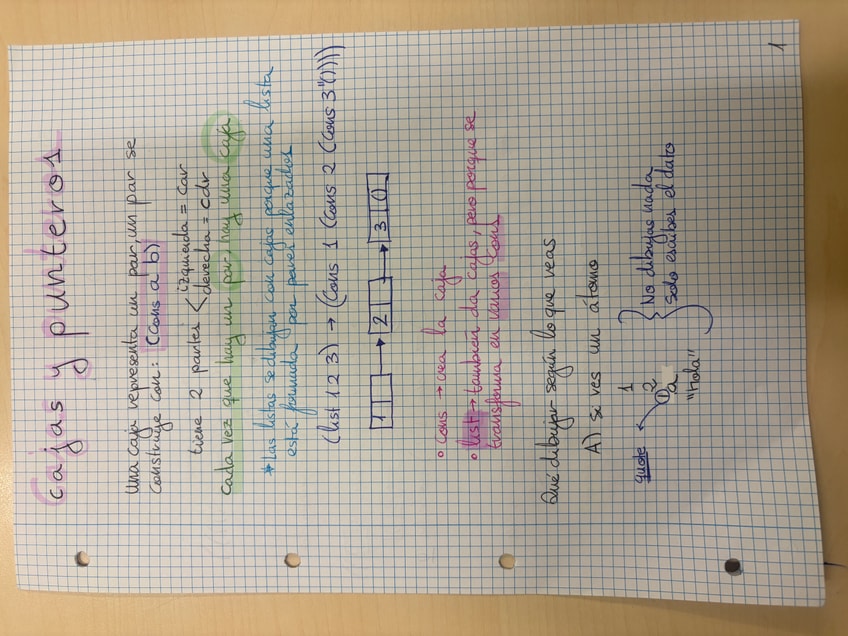 Cajas y punteros
Una caja representa un par, un par se
construye con: (cons a b)
tiene 2 partes < izquierda = car
derecha = cdr
cada vez que hay un par hay una caja
* Las listas se dibujan con cajas porque una lista
está formada por pares enlazados
(list 1 2 3) → (cons 1 (cons 2 (cons 3 '())))
1 → 2 → 3 ()
• cons → crea la caja
• list → también da cajas, pero porque se
transforma en varios cons
Qué dibujar según lo que veas
A) si ves un átomo
1
quote
'a
"Hola"
No dibujas nada
Solo escribes el dato
1